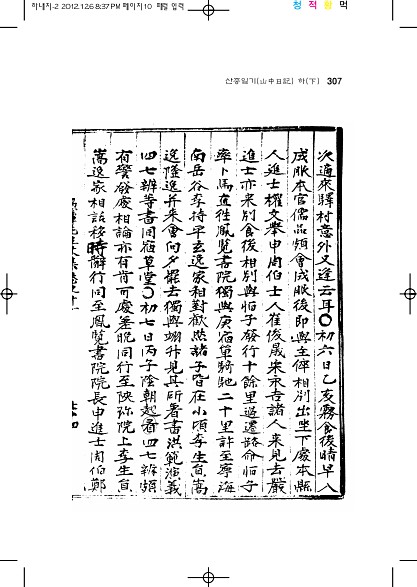 하내지-2 2012.12.6 8:37 PM 페이지10 패럴 입력
청 적 황 먹
산중일기(山中日記) 하(下) 307
次適來驛村意外又逢云耳○初六日乙亥霧食後晴早八
成服本官儒品頻會成服後即與主倅相別出坐下處本縣
人進士權文擧申周伯士人崔俊晟來永吉諸人來見去嚴
進士亦來別食後相別與恒子發行十餘里迤還路命恒子
率卜馬直往鳳覽書院獨與庚宿單騎馳二十里許至寧海
南岳谷李持平玄逸家相對歡然諸子皆在小頃李生嵩
逸隆逸并來會向夕罷去獨與翊升見其所著書洪範衍義
四七辨等書同宿草堂○初七日丙子陰朝起看四七辨頗
有警發處相論亦有肯可處差晩同行至院上李生
嵩逸家相話移時辭行同至鳳覽書院院長申進士周伯鄭